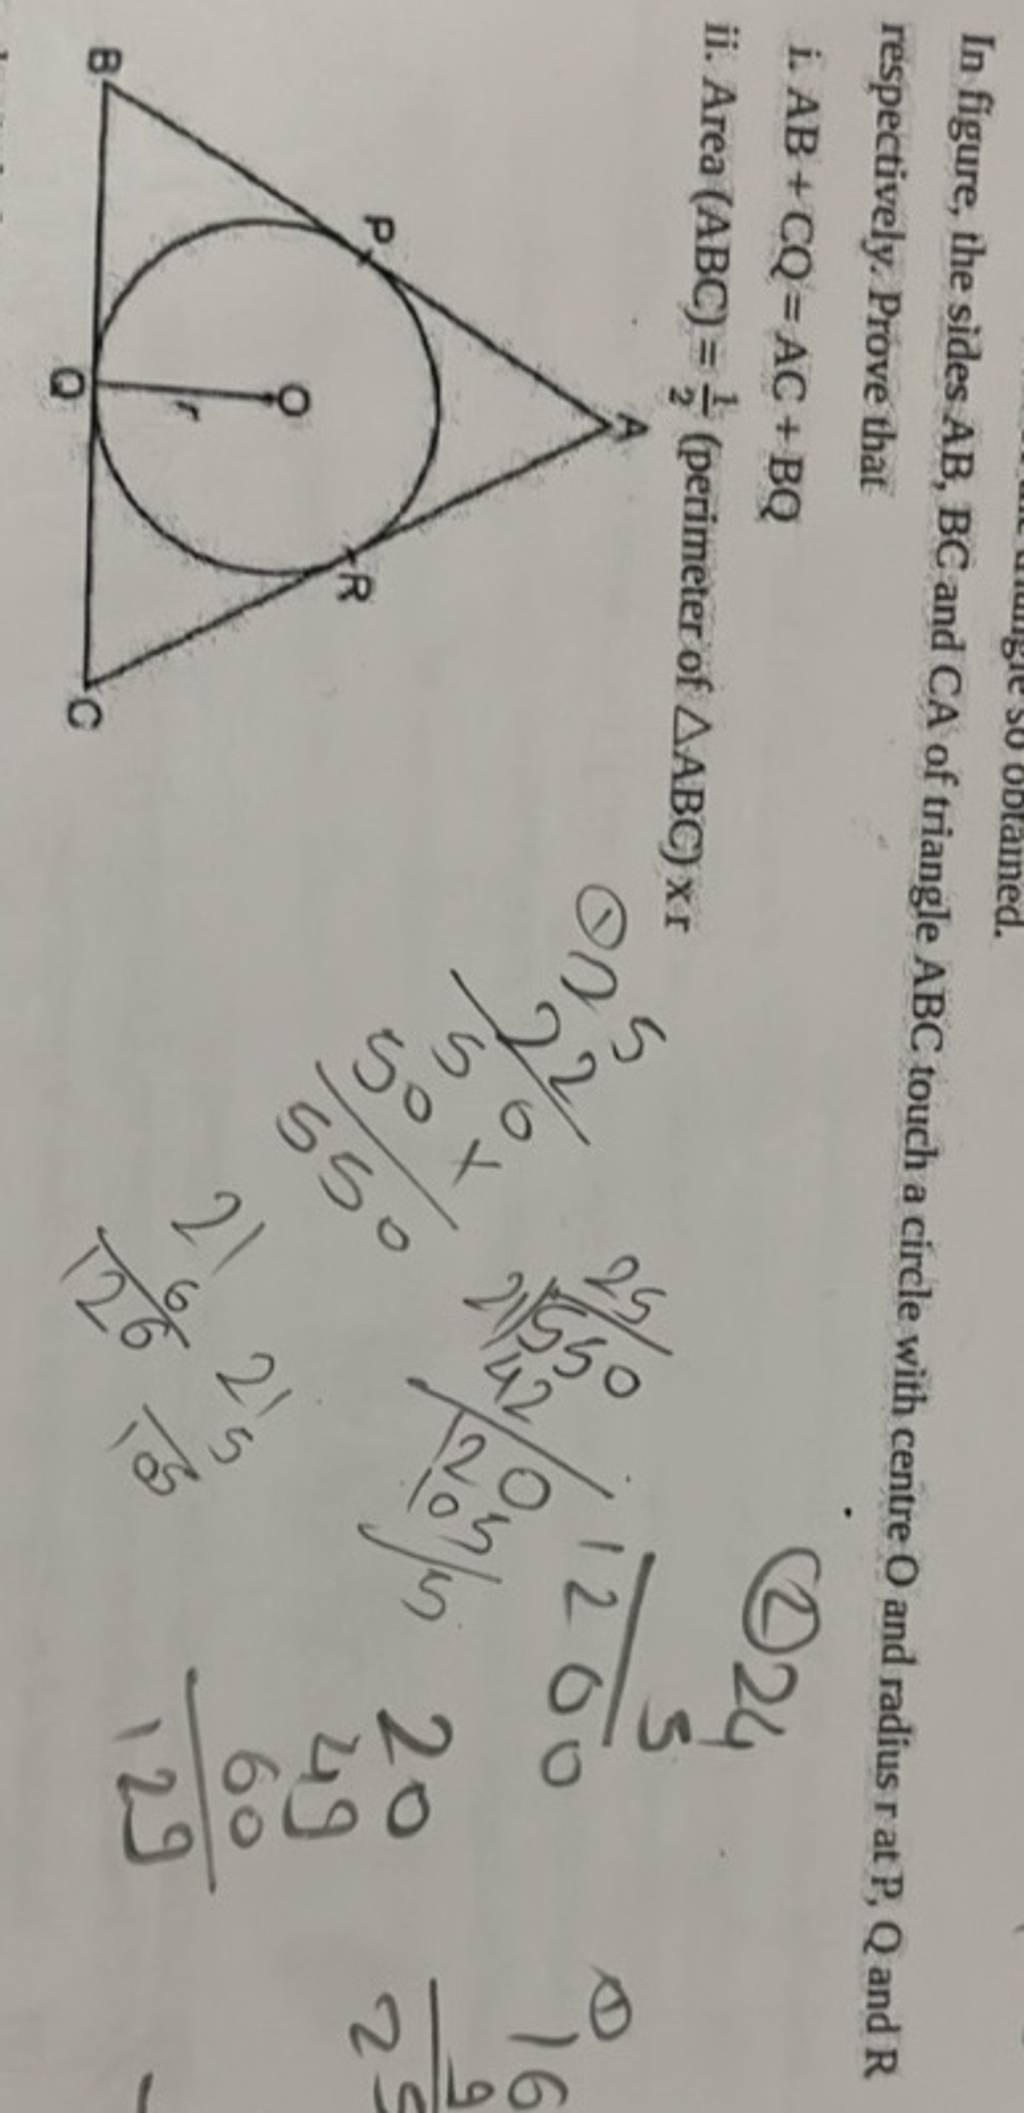 so obtained.
In figure, the sides AB, BC and CA of triangle ABC touch a circle with centre O and radius r at P, Q and R
respectively. Prove that
i. AB + CQ = AC + BQ
ii. Area (ABC) = 1/2 (perimeter of △ABC) x r
A
P
R
O
r
B
Q
C
5
22
50
50 x
550
25
21 550
42
120
105
5
21
6
126
21
5
105
2 24
5
120
20
49
60
129
1 16
9
25